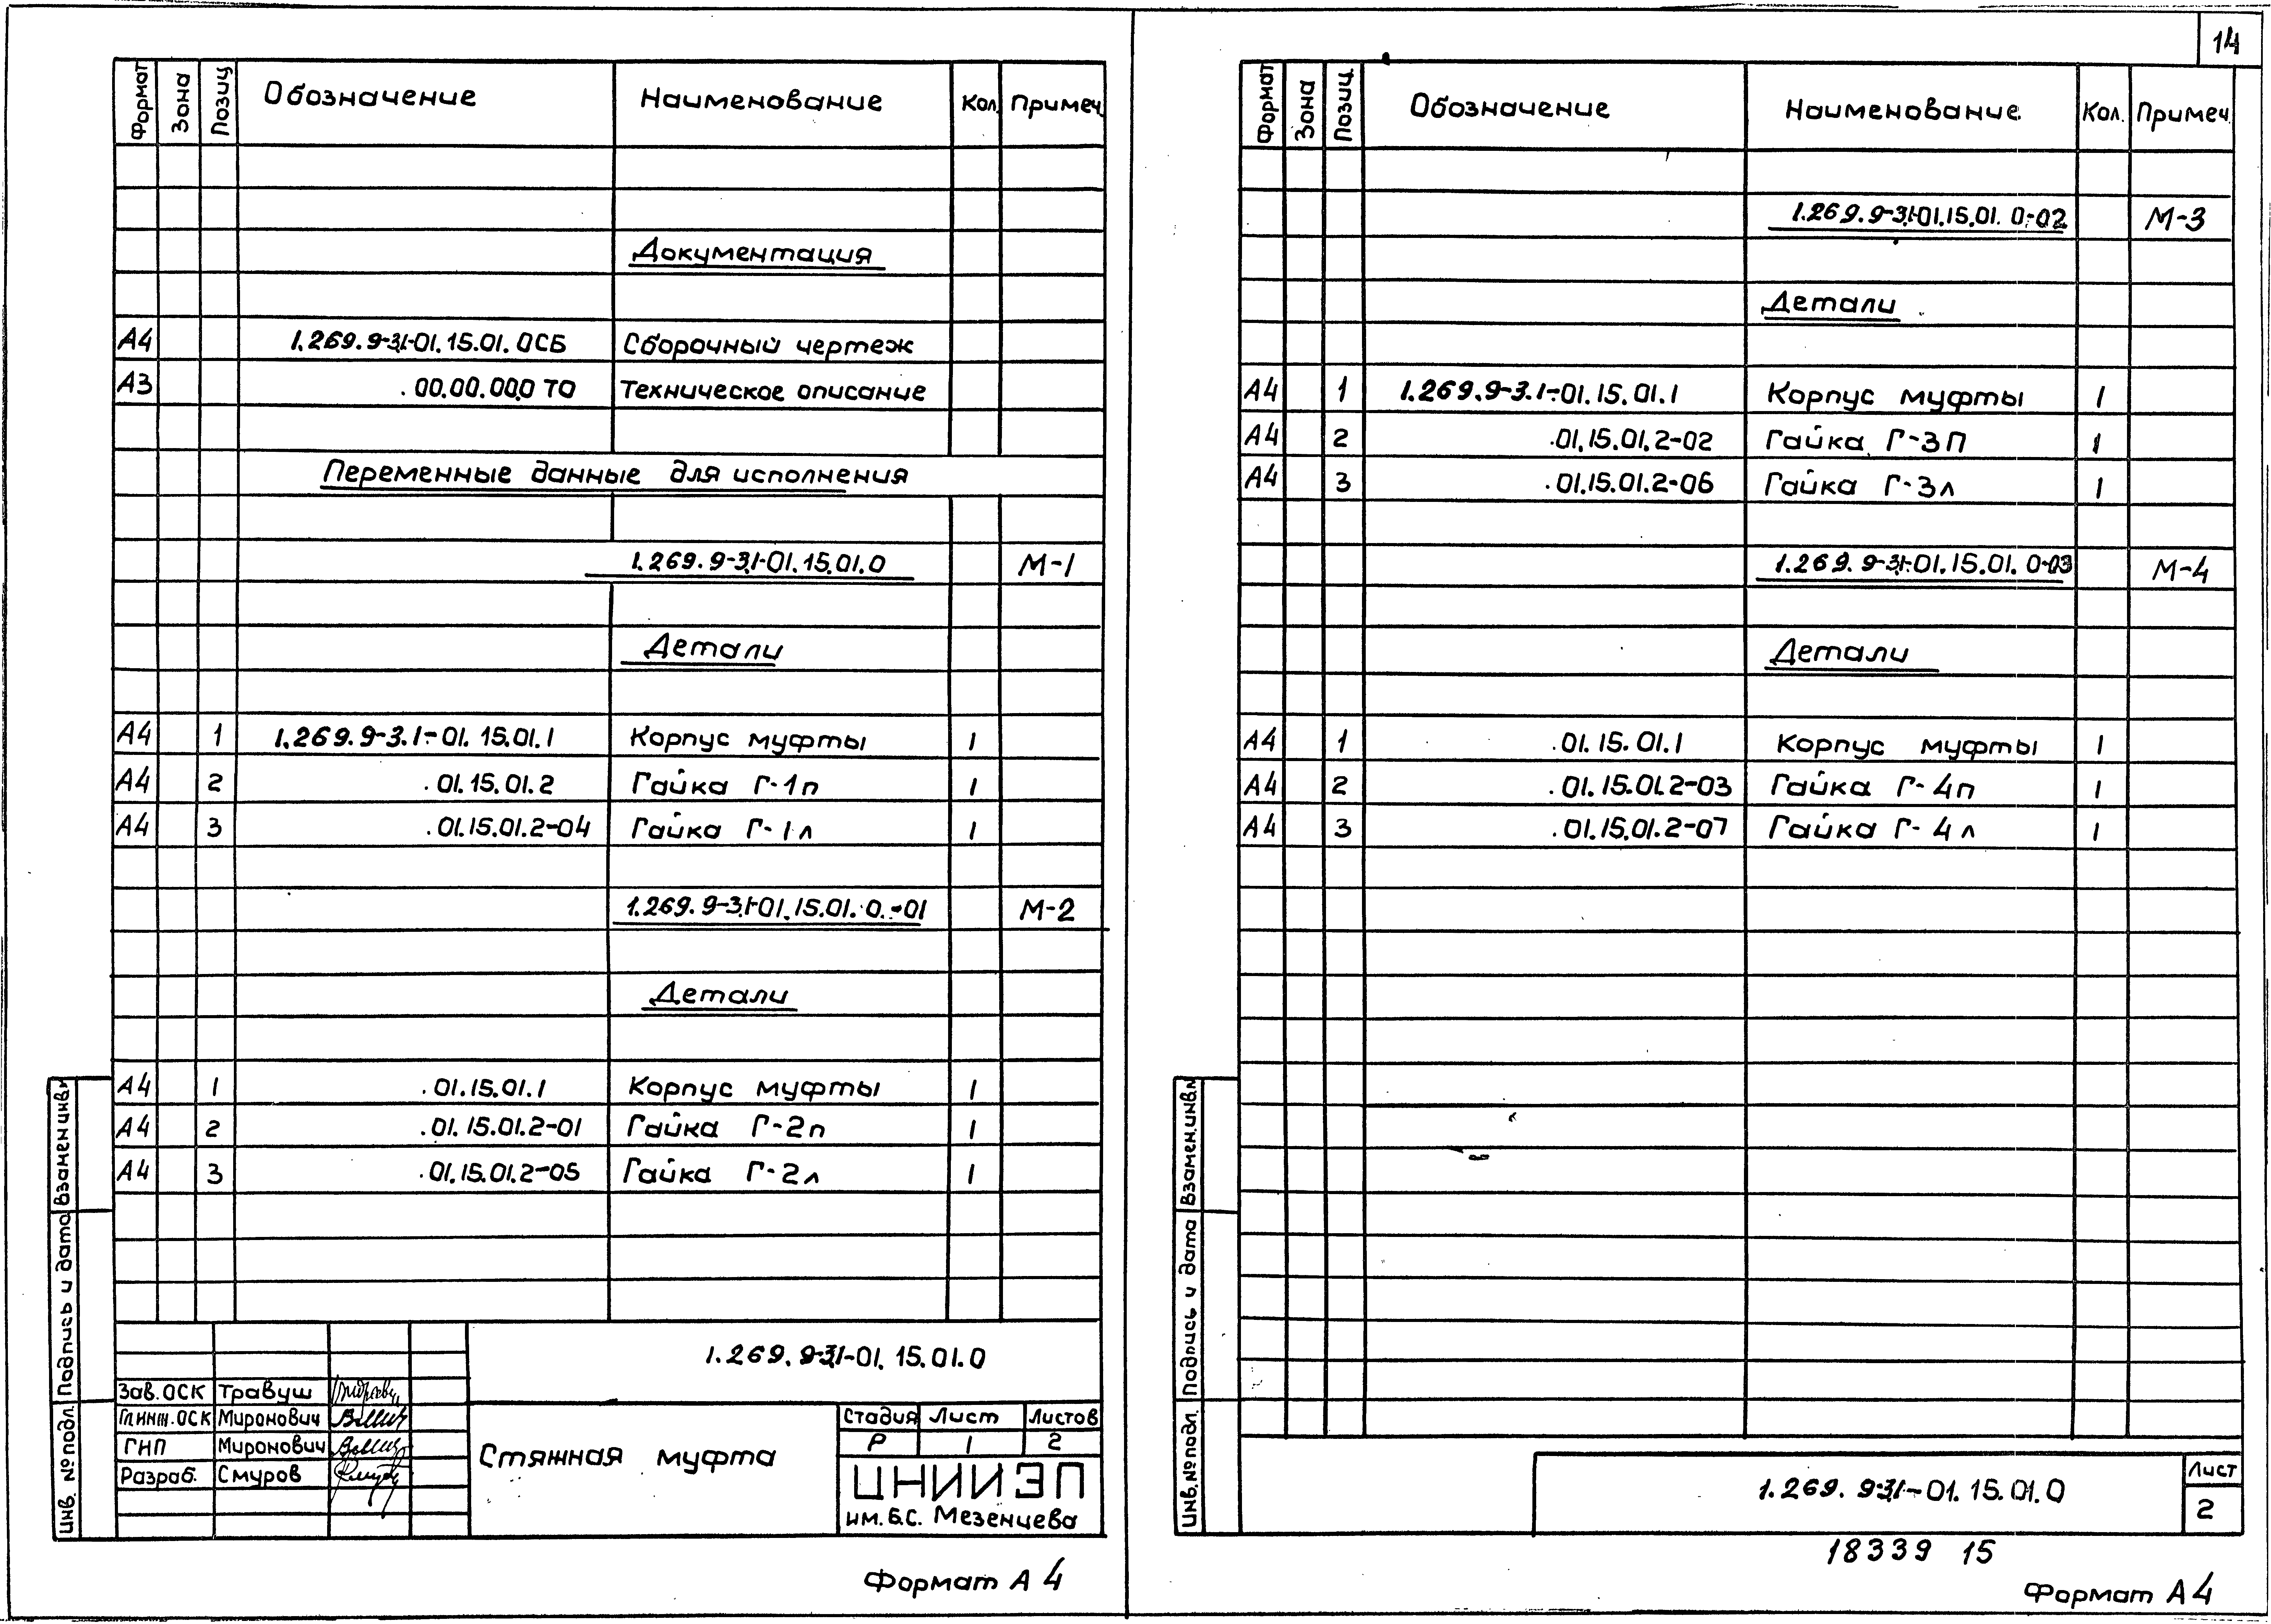 Формат Зона Позиц Обозначение Наименование Кол. Примеч.
Документация
А4 1.269.9-3.1-01.15.01.0СБ Сборочный чертеж
А3 .00.00.000 ТО Техническое описание
Переменные данные для исполнения
1.269.9-3.1-01.15.01.0 М-1
Детали
А4 1 1.269.9-3.1-01.15.01.1 Корпус муфты 1
А4 2 .01.15.01.2 Гайка Г-1п 1
А4 3 .01.15.01.2-04 Гайка Г-1л 1
1.269.9-3.1-01.15.01.0-01 М-2
Детали
А4 1 .01.15.01.1 Корпус муфты 1
А4 2 .01.15.01.2-01 Гайка Г-2п 1
А4 3 .01.15.01.2-05 Гайка Г-2л 1
Инв. № подл. Подпись и дата Взамен инв.
1.269.9-3.1-01.15.01.0
Зав. ОСК Травуш
Гл. инж. ОСК Миронович
ГИП Миронович
Разраб. Смуров
Стяжная муфта
Стадия Лист Листов
Р 1 2
ЦНИИЭП
им. Б.С. Мезенцева
Формат А4
14
Формат Зона Позиц. Обозначение Наименование Кол. Примеч.
1.269.9-3.1-01.15.01.0-02 М-3
Детали
А4 1 1.269.9-3.1-01.15.01.1 Корпус муфты 1
А4 2 .01.15.01.2-02 Гайка Г-3П 1
А4 3 .01.15.01.2-06 Гайка Г-3л 1
1.269.9-3.1-01.15.01.0-03 М-4
Детали
А4 1 .01.15.01.1 Корпус муфты 1
А4 2 .01.15.01.2-03 Гайка Г-4п 1
А4 3 .01.15.01.2-07 Гайка Г-4л 1
Инв. № подл. Подпись и дата Взамен. инв.
1.269.9-3.1-01.15.01.0
Лист
2
18339 15
Формат А4